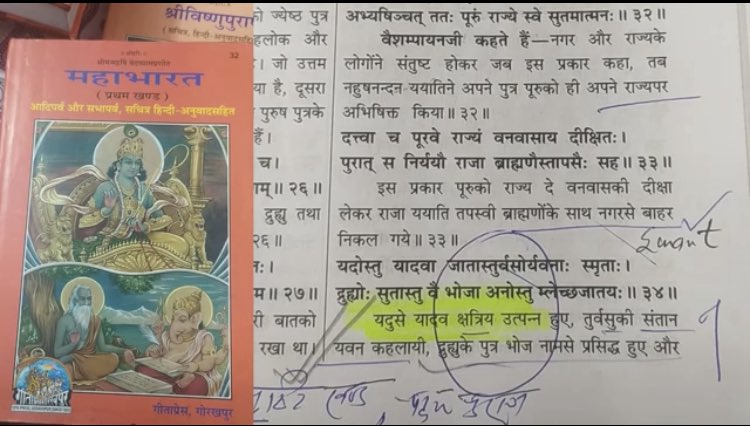 श्रीविष्णुपुरा
(सचित्र, हिन्दी-अनुवादसहित)
32
महाभारत
(प्रथम खण्ड)
आदिपर्व और सभापर्व, सचित्र हिन्दी-अनुवादसहित
गीताप्रेस, गोरखपुर
को ज्येष्ठ पुत्र
हलोक और
। जो उत्तम
या है, दूसरा
पुरुष पुत्रके
हैं।
च।
ाम्॥ २६॥
द्रुह्यु तथा
२६॥
तः।
म॥ २७॥
री बातको
रखा था।
अभ्यषिञ्चत् ततः पूरुं राज्ये स्वे सुतमात्मनः॥ ३२॥
वैशम्पायनजी कहते हैं—नगर और राज्यके
लोगोंने संतुष्ट होकर जब इस प्रकार कहा, तब
नहुषनन्दन ययातिने अपने पुत्र पूरुको ही अपने राज्यपर
अभिषिक्त किया॥ ३२॥
दत्त्वा च पूरवे राज्यं वनवासाय दीक्षितः।
पुरात् स निर्ययौ राजा ब्राह्मणैस्तापसैः सह॥ ३३॥
इस प्रकार पूरुको राज्य दे वनवासकी दीक्षा
लेकर राजा ययाति तपस्वी ब्राह्मणोंके साथ नगरसे बाहर
निकल गये॥ ३३॥
यदोस्तु यादवा जातास्तुर्वसोर्यवनाः स्मृताः।
द्रुह्योः सुतास्तु वै भोजा अनोस्तु म्लेच्छजातयः॥ ३४॥
यदुसे यादव क्षत्रिय उत्पन्न हुए, तुर्वसुकी संतान
यवन कहलायी, द्रुह्युके पुत्र भोज नामसे प्रसिद्ध हुए और